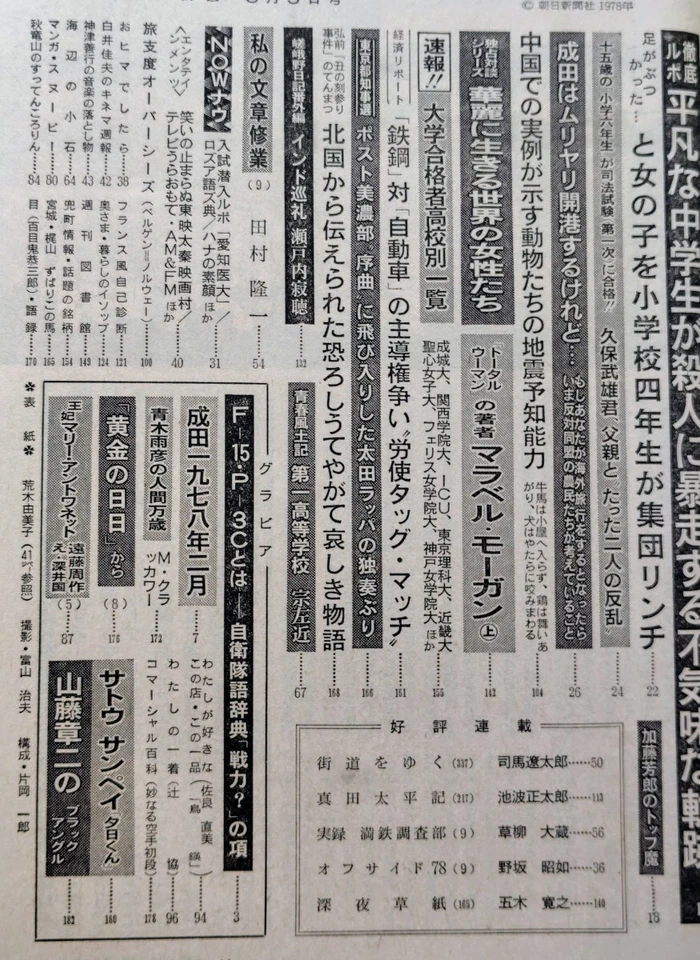 © 朝日新聞社 1978年
徹底ルポ 平凡な中学生が殺人に暴走する不気味な軌跡
足がぶつかった…と女の子を小学校四年生が集団リンチ……22
十五歳の〝小学六年生〟が司法試験〝第一次〟に合格!! 久保武雄君〝父親とたった二人の反乱〟……24
成田はムリヤリ開港するけれど… もしあなたが海外旅行をするとなったら いま反対同盟の農民たちが考えていること……26
中国での実例が示す動物たちの地震予知能力 牛馬は小屋へ入らず、鶏は舞いあがり、犬はやたらに咬みまわる……104
独占対談シリーズ 華麗に生きる世界の女性たち 「トータルウーマン」の著者 マラベル・モーガン 上……142
速報!! 大学合格者高校別一覧 成城大、関西学院大、ICU、東京理科大、近畿大 聖心女子大、フェリス女学院大、神戸女学院大 ほか……155
経済リポート 「鉄鋼」対「自動車」の主導権争い〝労使タッグ・マッチ〟……161
東京都知事選 ポスト美濃部〝序曲〟に飛び入りした太田ラッパの独奏ぶり……166
弘前「丑の刻参り事件」のてんまつ 北国から伝えられた恐ろしうてやがて哀しき物語……168
嵯峨野日記番外編 インド巡礼 瀬戸内寂聴……132
青春風土記 第一高等学校 宗左近……67
私の文章修業(9) 田村隆一……54
NOWナウ 入試潜入ルポ「愛知医大」/ロズア語ズ典/ハナの素顔 ほか……31
〈エンタテイメンツ〉 笑いの止まらぬ東映太秦映画村/テレビうらおもて・AM&FM ほか……40
旅支度オーバーシーズ(ベルゲン=ノルウェー)……100
おヒマでしたら……38
白井佳夫のキネマ週報……42
神津善行の音楽の落とし物……43
海辺の小石……64
マンガ・スヌーピー……80
秋竜山のすってんころりん……84
フランス風自己診断……121
奥さま・暮らしのイソップ……124
週刊図書館……149
兜町情報・話題の銘柄……154
宮城・梶山 ずばりこの馬……165
目(百目鬼恭三郎)・語録……170
加藤芳郎のトップ魔……18
好評連載
街道をゆく(337) 司馬遼太郎……50
真田太平記(217) 池波正太郎……113
実録 満鉄調査部(9) 草柳大蔵……56
オフサイド78(9) 野坂昭如……36
深夜草紙(165) 五木寛之……140
グラビア
F-15・P-3Cとは——自衛隊語辞典「戦力?」の項……3
成田一九七八年二月……7
青木雨彦の人間万歳 M・クラッカワー……172
「黄金の日日」から(8)……176
王妃マリー・アントワネット 遠藤周作 え・深井国(5)……87
わたしが好きなこの店・この一品(佐良直美「鳥繕」)……94
わたしの一着(辻協)……96
コマーシャル百科(妙なる空手初段)……178
サトウ サンペイ「夕日くん」……180
山藤章二のブラックアングル……182
✽表紙✽ 荒木由美子(41ページ参照) 撮影・富山治夫 構成・片岡一郎